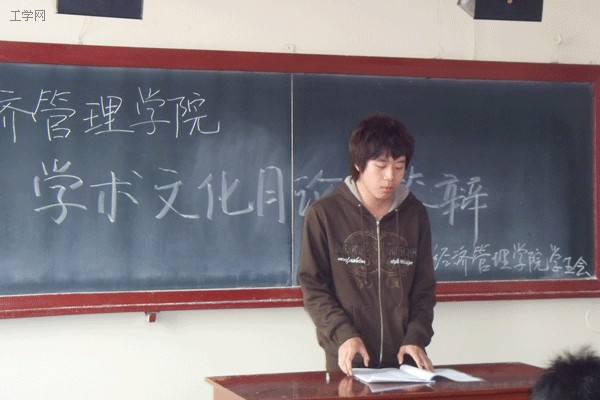 工学网
济管理学院
学术文化月论 答辩
经济管理学院学生会